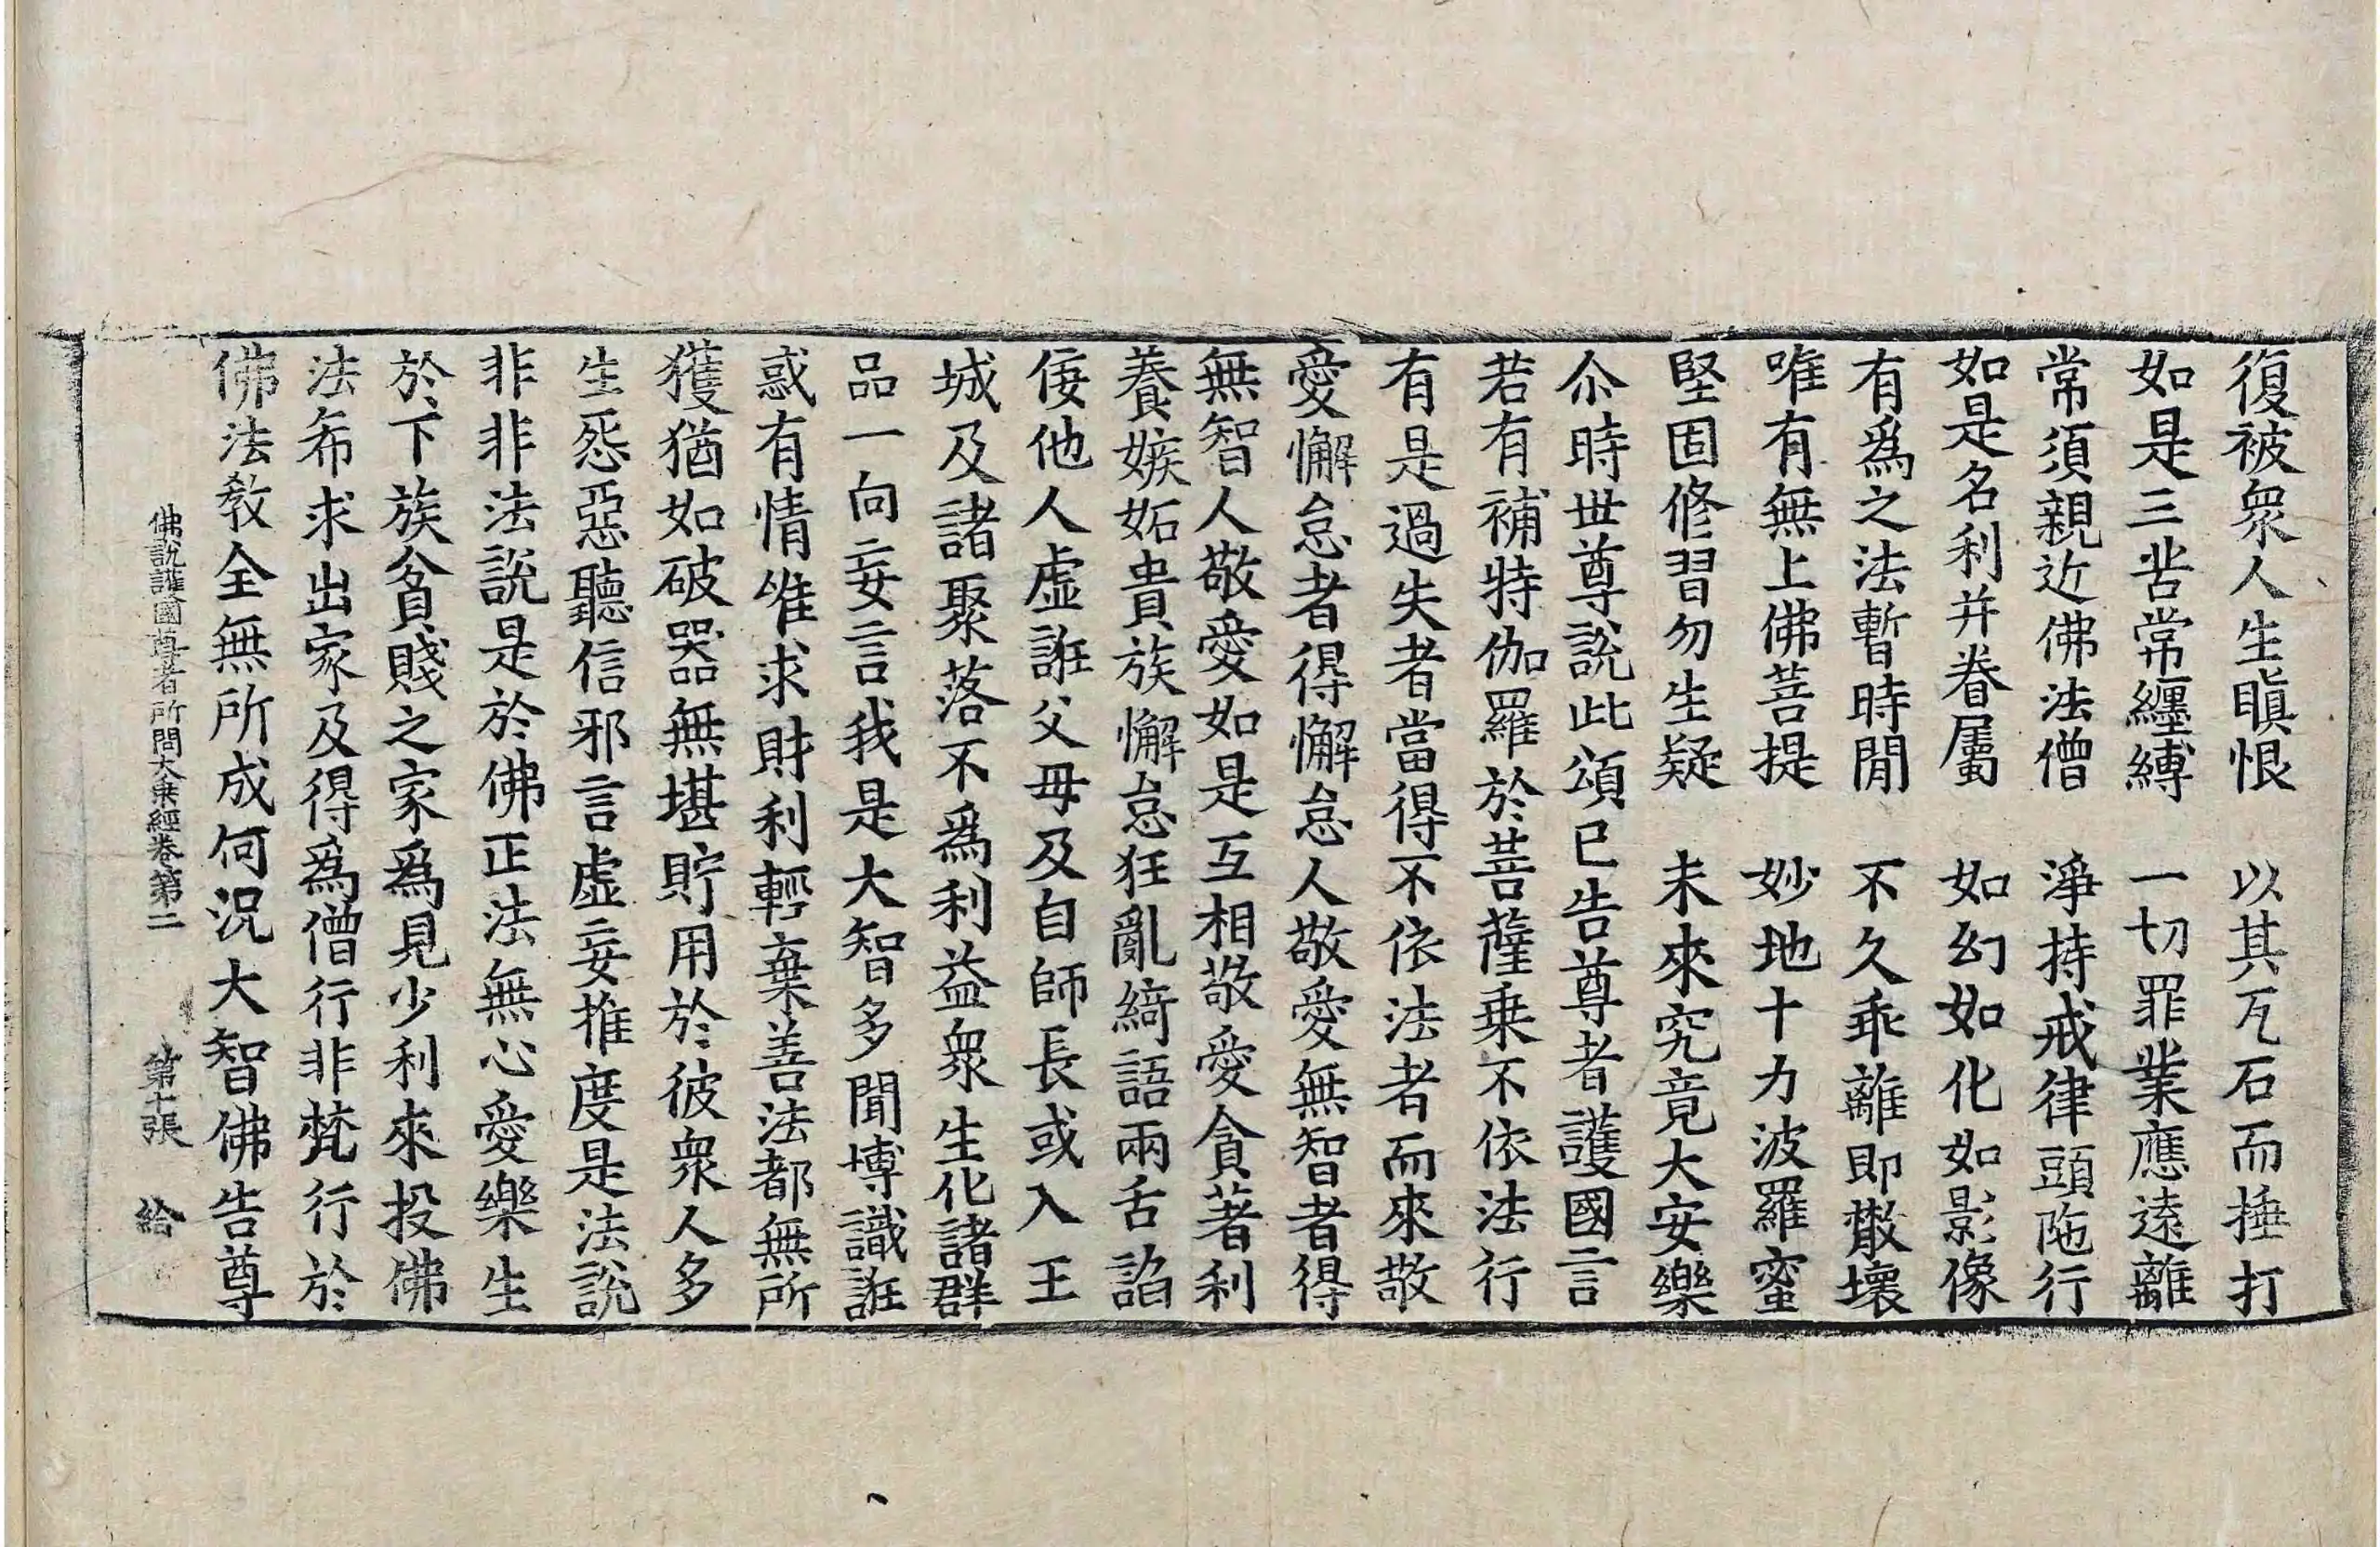 復被衆人生瞋恨　以其瓦石而捶打
如是三苦常纏縛　一切罪業應遠離
常須親近佛法僧　淨持戒律頭陁行
如是名利并眷屬　如幻如化如影像
有爲之法暫時閒　不久乖離即散壞
唯有無上佛菩提　妙地十力波羅蜜
堅固修習勿生疑　未來究竟大安樂
尒時世尊說此頌已告尊者護國言
若有補特伽羅於菩薩乗不依法行
有是過失者當得不依法者而來敬
愛懈怠者得懈怠人敬愛無智者得
無智人敬愛如是互相敬愛貪著利
養嫉妬貴族懈怠狂亂綺語兩舌諂
倿他人虛誑父母及自師長或入王
城及諸聚落不爲利益衆生化諸群
品一向妄言我是大智多聞博識誑
惑有情唯求財利輕棄善法都無所
獲猶如破器無堪貯用於彼衆人多
生惡聽信邪言虛妄推度是法說
非非法說是於佛正法無心愛樂生
於下族貧賤之家爲見少利來投佛
法希求出家及得爲僧行非梵行於
佛法教全無所成何況大智佛告尊
佛說護國尊者所問大乗經卷第二　第十張　給